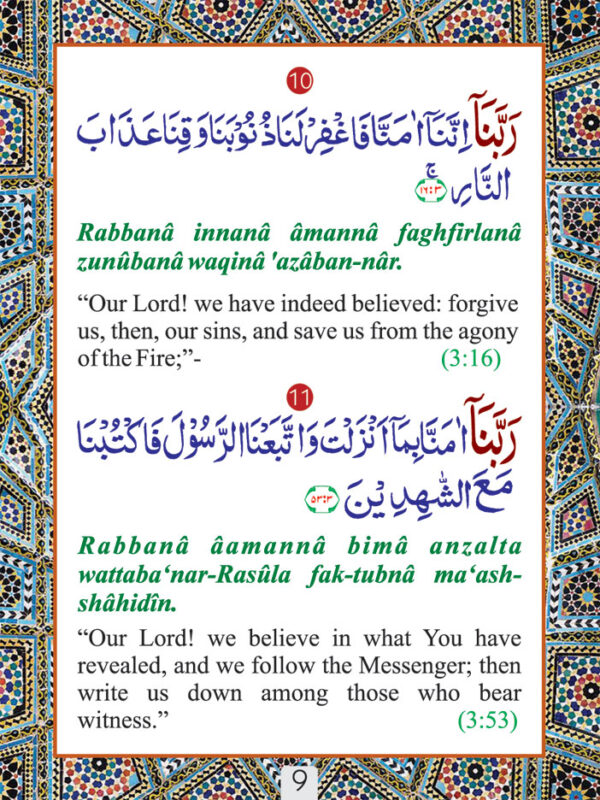 10
رَبَّنَآ اِنَّنَآ اٰمَنَّا فَاغْفِرْ لَنَا ذُنُوْبَنَا وَقِنَا عَذَابَ
النَّارِ ۚ ۳:۱۶
Rabbanâ innanâ âmannâ faghfirlanâ
zunûbanâ waqinâ 'azâban-nâr.
“Our Lord! we have indeed believed: forgive
us, then, our sins, and save us from the agony
of the Fire;”- (3:16)
11
رَبَّنَآ اٰمَنَّا بِمَآ اَنْزَلْتَ وَاتَّبَعْنَا الرَّسُوْلَ فَاكْتُبْنَا
مَعَ الشّٰهِدِيْنَ ۳:۵۳
Rabbanâ âamannâ bimâ anzalta
wattaba‘nar-Rasûla fak-tubnâ ma‘ash-
shâhidîn.
“Our Lord! we believe in what You have
revealed, and we follow the Messenger; then
write us down among those who bear
witness.” (3:53)
9